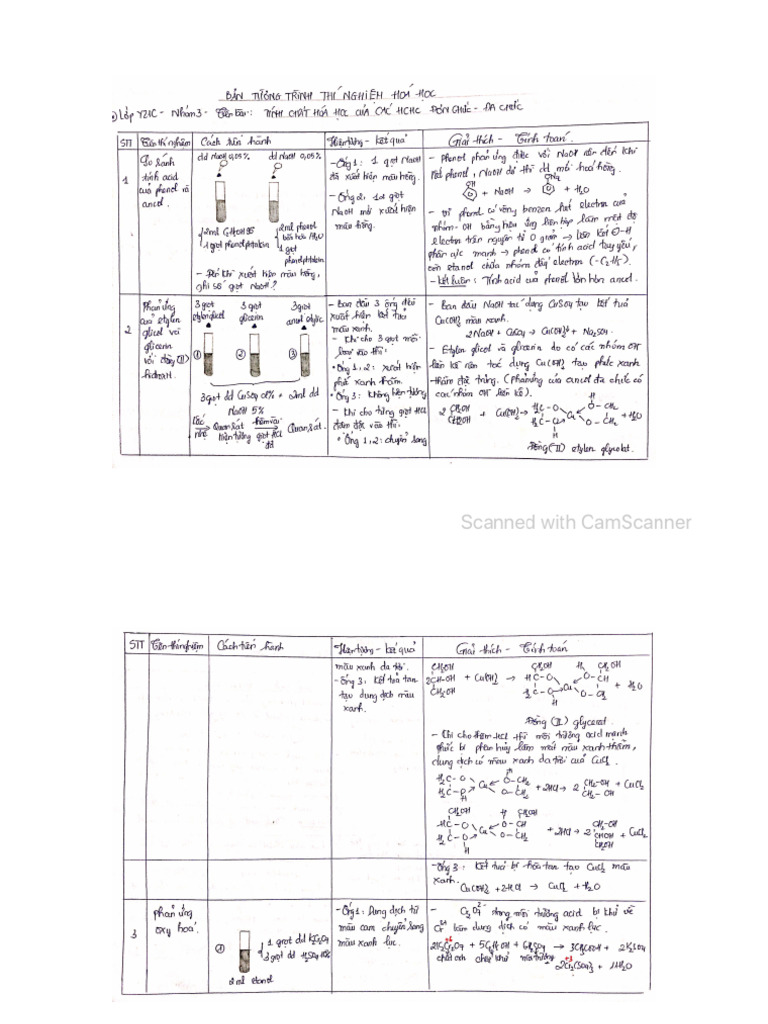 BẢN TƯỜNG TRÌNH THÍ NGHIỆM HOÁ HỌC
Lớp YZ4C - Nhóm 3 - Tên bài: TÍNH CHẤT HOÁ HỌC CỦA CÁC HCHC ĐƠN CHỨC - ĐA CHỨC
STT Tên thí nghiệm Cách tiến hành Hiện tượng - kết quả Giải thích - Tính toán
1
So sánh
tính acid
của phenol và
ancol.
dd NaOH 0,05% dd NaOH 0,05%
2ml C2H5OH 96
1 giọt phenolphtalein
2ml phenol
bão hoà/H2O
1 giọt
phenolphtalein
- Đến khi xuất hiện màu hồng,
ghi số giọt NaOH?
- Ống 1: 1 giọt NaOH
đã xuất hiện màu hồng.
- Ống 2, giọt
NaOH mới xuất hiện
màu hồng.
- Phenol phản ứng được với NaOH nên đến khi
hết phenol, NaOH dư thì dd mới hoá hồng.
OH + NaOH → ONa + H2O
- Vì phenol có vòng benzen hút electron của
nhóm -OH bằng hiệu ứng liên hợp làm mật độ
electron trên nguyên tử O giảm → liên kết O-H
phân cực mạnh → phenol có tính acid tuy yếu,
còn etanol chứa nhóm đẩy electron (-C2H5).
- Kết luận: Tính acid của phenol lớn hơn ancol.
2
Phản ứng
của etylen
glicol và
glicerin
với đồng (II)
hidroxit.
3 giọt
etylenglicol
3 giọt
glicerin
3 giọt
ancol etylic
① ② ③
3 giọt dd CuSO4 2% + 2ml dd
NaOH 5%
Lắc
nhẹ → Quan sát
hiện tượng thêm vài
giọt HCl
đđ → Quan sát.
- Ban đầu 3 ống đều
xuất hiện kết tủa
màu xanh.
- Khi cho 3 giọt mỗi
loại vào thì:
• Ống 1, 2: xuất hiện
phức xanh thẫm.
• Ống 3: Không hiện tượng
- Khi cho từng giọt HCl
đậm đặc vào thì:
• Ống 1, 2: chuyển sang
- Ban đầu NaOH tác dụng CuSO4 tạo kết tủa
Cu(OH)2 màu xanh.
2NaOH + CuSO4 → Cu(OH)2↓ + Na2SO4
- Etylen glicol và glicerin do có các nhóm OH
liền kề nên tác dụng Cu(OH)2 tạo phức xanh
thẫm đặc trưng. (Phản ứng của ancol đa chức có
các nhóm OH liền kề).
2 CH2OH
CH2OH + Cu(OH)2 → H2C-O Cu O-CH2 + H2O
Đồng (II) etylen glycolat.
Scanned with CamScanner
STT Tên thí nghiệm Cách tiến hành Hiện tượng - kết quả Giải thích - Tính toán
màu xanh da trời.
- Ống 3: Kết tủa tan
tạo dung dịch màu
xanh.
CH2OH
2CH-OH + Cu(OH)2 →
CH2OH
+ H2O
Đồng (II) glycerat.
- Khi cho thêm HCl thì môi trường acid mạnh
phức bị phân huỷ làm mất màu xanh thẫm,
dung dịch có màu xanh da trời của CuCl2.
+ 2HCl → 2 CH2-OH
CH2-OH + CuCl2
+ 2HCl → 2 CH2-OH
CHOH
CH2OH + CuCl2
- Ống 3: Kết tủa bị hoà tan tạo CuCl2 màu
xanh.
Cu(OH)2 + 2HCl → CuCl2 + H2O
3
Phản ứng
oxy hoá.
①
1 giọt dd K2Cr2O7
3 giọt dd H2SO4 10%
2ml etanol
- Ống 1: Dung dịch từ
màu cam chuyển sang
màu xanh lục.
- Cr2O7 2- trong môi trường acid bị khử về
Cr3+ làm dung dịch có màu xanh lục.
→ 3CH3COOH + 2K2SO4
chất oxh chất khử môi trường